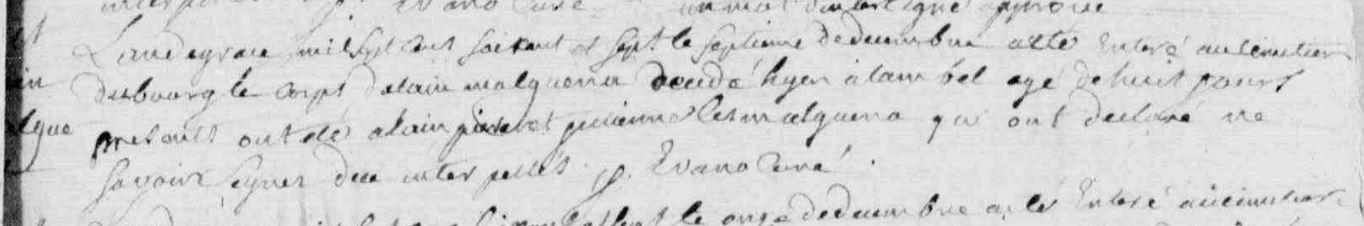 un mot interligné approuvé
Lan de grace mil sept cent soixant et sept le septieme de decembre a eté Enteré au cimetier
du bourg le corps dalain malguena decedé hyer à lambel agé de huit jours
presents ont eté alain piere et julienne les malguena qui ont declaré ne
savoir signer due interpellés. J. Evano curé.
le onze de decembre a eté Enteré au cimetiere